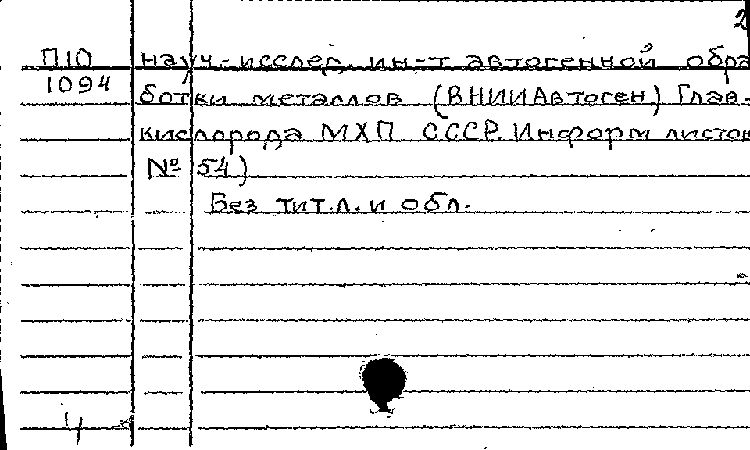 2
П10 науч.-исслед. ин-т автогенной обра
1094 ботки металлов (ВНИИАвтоген) Глав-
кислорода МХП СССР. Информ листок
№ 54)
Без тит.л. и обл.